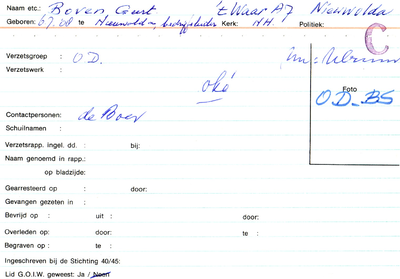 Naam etc.: Boven Geert 't Waar A7 Nieuwolda
Geboren: 6.7.08 te Nieuwolda, bedrijfsleider Kerk: N.H. Politiek:
C
Verzetsgroep : O.D.
Verzetswerk :
oké
Foto
O.D. BS
Contactpersonen: de Boer
Schuilnaam :
Verzetsrapp. ingel. dd. : bij:
Naam genoemd in rapp.:
op bladzijde:
Gearresteerd op : door:
Gevangen gezeten in :
Bevrijd op : uit : door:
Overleden op: door: te :
Begraven op : te :
Ingeschreven bij de Stichting 40/45:
Lid G.O.I.W. geweest: Ja / Neen